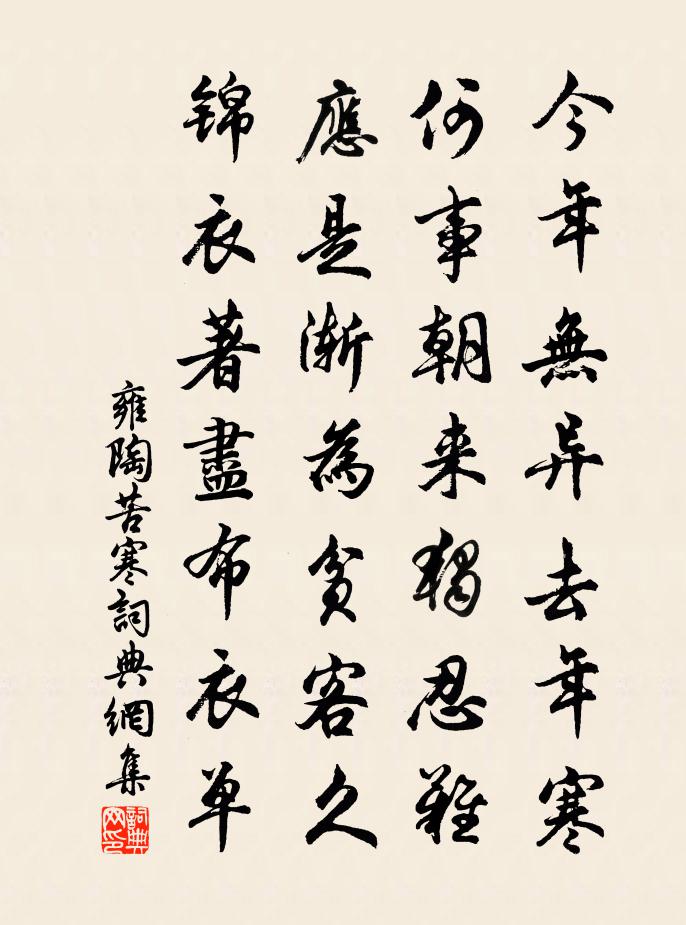 今年無异去年寒
何事朝来獨忍難
應是漸為貧客久
锦衣著盡布衣单
雍陶苦寒詞典網集
詞典网印